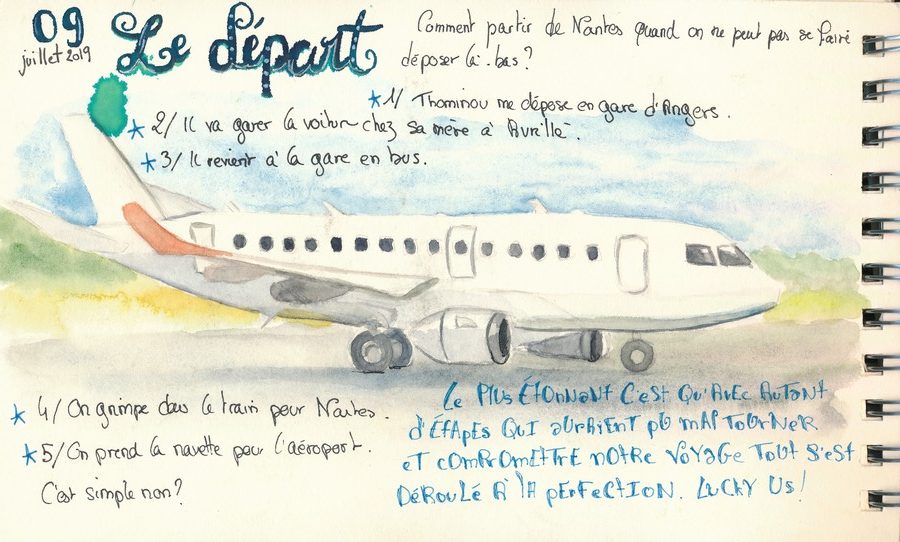 09
juillet 2019
Le départ
Comment partir de Nantes quand on ne peut pas se faire
déposer là-bas?
*1/ Thominou me dépose en gare d'Angers.
*2/ Il va garer la voiture chez sa mère à Avrillé.
*3/ Il revient à la gare en bus.
*4/ On grimpe dans le train pour Nantes.
*5/ On prend la navette pour l'aéroport.
C'est simple non?
Le plus étonnant c'est qu'avec autant
d'étapes qui auraient pu mal tourner
et compromettre notre voyage tout s'est
déroulé à la perfection. Lucky us!